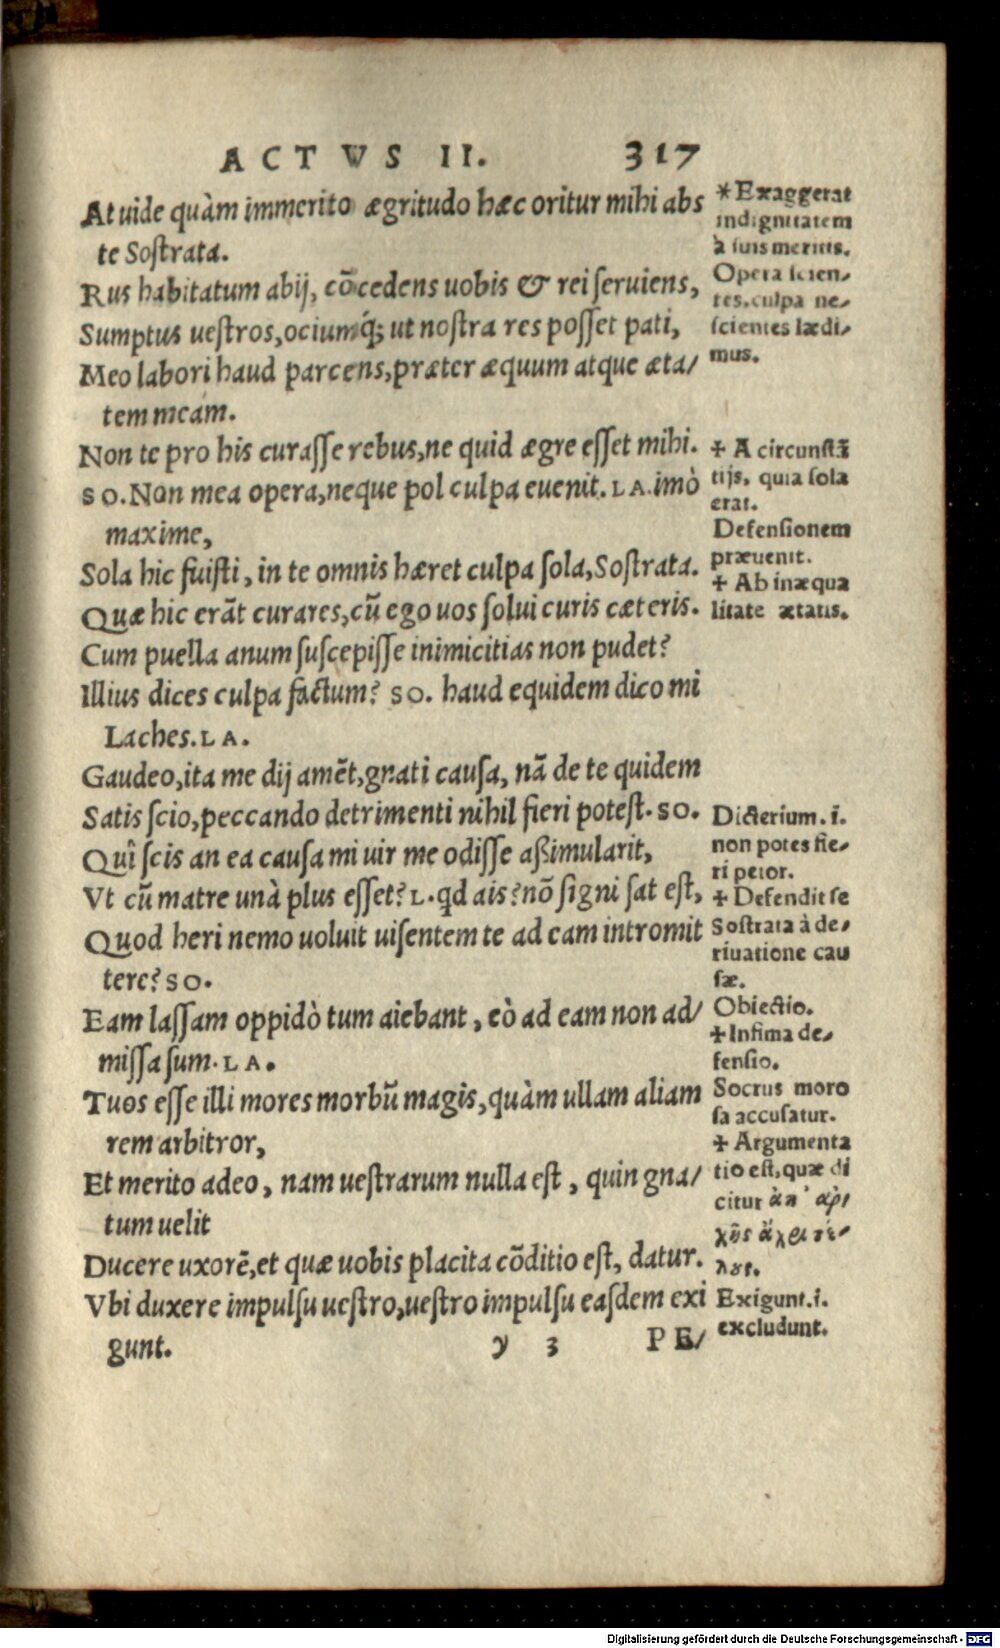 ACTVS II. 317
At uide quàm immerito ægritudo hæc oritur mihi abs
te Sostrata.
Rus habitatum abij, cõcedens uobis & rei seruiens,
Sumptus uestros, ociumq́; ut nostra res posset pati,
Meo labori haud parcens, præter æquum atque æta/
tem meam.
Non te pro his curasse rebus, ne quid ægre esset mihi.
SO. Non mea opera, neque pol culpa euenit. LA. imò
maxime,
Sola hic fuisti, in te omnis hæret culpa sola, Sostrata.
Quæ hic erãt curares, cũ ego uos solui curis cæteris.
Cum puella anum suscepisse inimicitias non pudet?
Illius dices culpa factum? SO. haud equidem dico mi
Laches. LA.
Gaudeo, ita me dij amẽt, gnati causa, nã de te quidem
Satis scio, peccando detrimenti nihil fieri potest. SO.
Quî scis an ea causa mi uir me odisse aßimularit,
Vt cũ matre unà plus esset? L. qd ais? nõ signi sat est,
Quod heri nemo uoluit uisentem te ad eam intromit
tere? SO.
Eam lassam oppidò tum aiebant, eò ad eam non ad/
missa sum. LA.
Tuos esse illi mores morbũ magis, quàm ullam aliam
rem arbitror,
Et merito adeo, nam uestrarum nulla est, quin gna/
tum uelit
Ducere uxorẽ, et quæ uobis placita cõditio est, datur.
Vbi duxere impulsu uestro, uestro impulsu easdem exi
gunt.
y 3 PE/
*Exaggerat
indignitatem
à suis meritis.
Opera scien/
tes, culpa ne/
scientes lædi/
mus.
+ A circunstã
tijs. quia sola
erat.
Defensionem
præuenit.
+ Ab inæqua
litate ætatis.
Dicterium. i.
non potes fie/
ri peior.
+ Defendit se
Sostrata à de/
riuatione cau
sæ.
Obiectio.
+ Infima de/
fensio.
Socrus moro
sa accusatur.
+ Argumenta
tio est, quæ di
citur ἀπ' ἀρ/
χῆς ἄχρι τέ/
λους.
Exigunt. i.
excludunt.
Digitalisierung gefördert durch die Deutsche Forschungsgemeinschaft - DFG